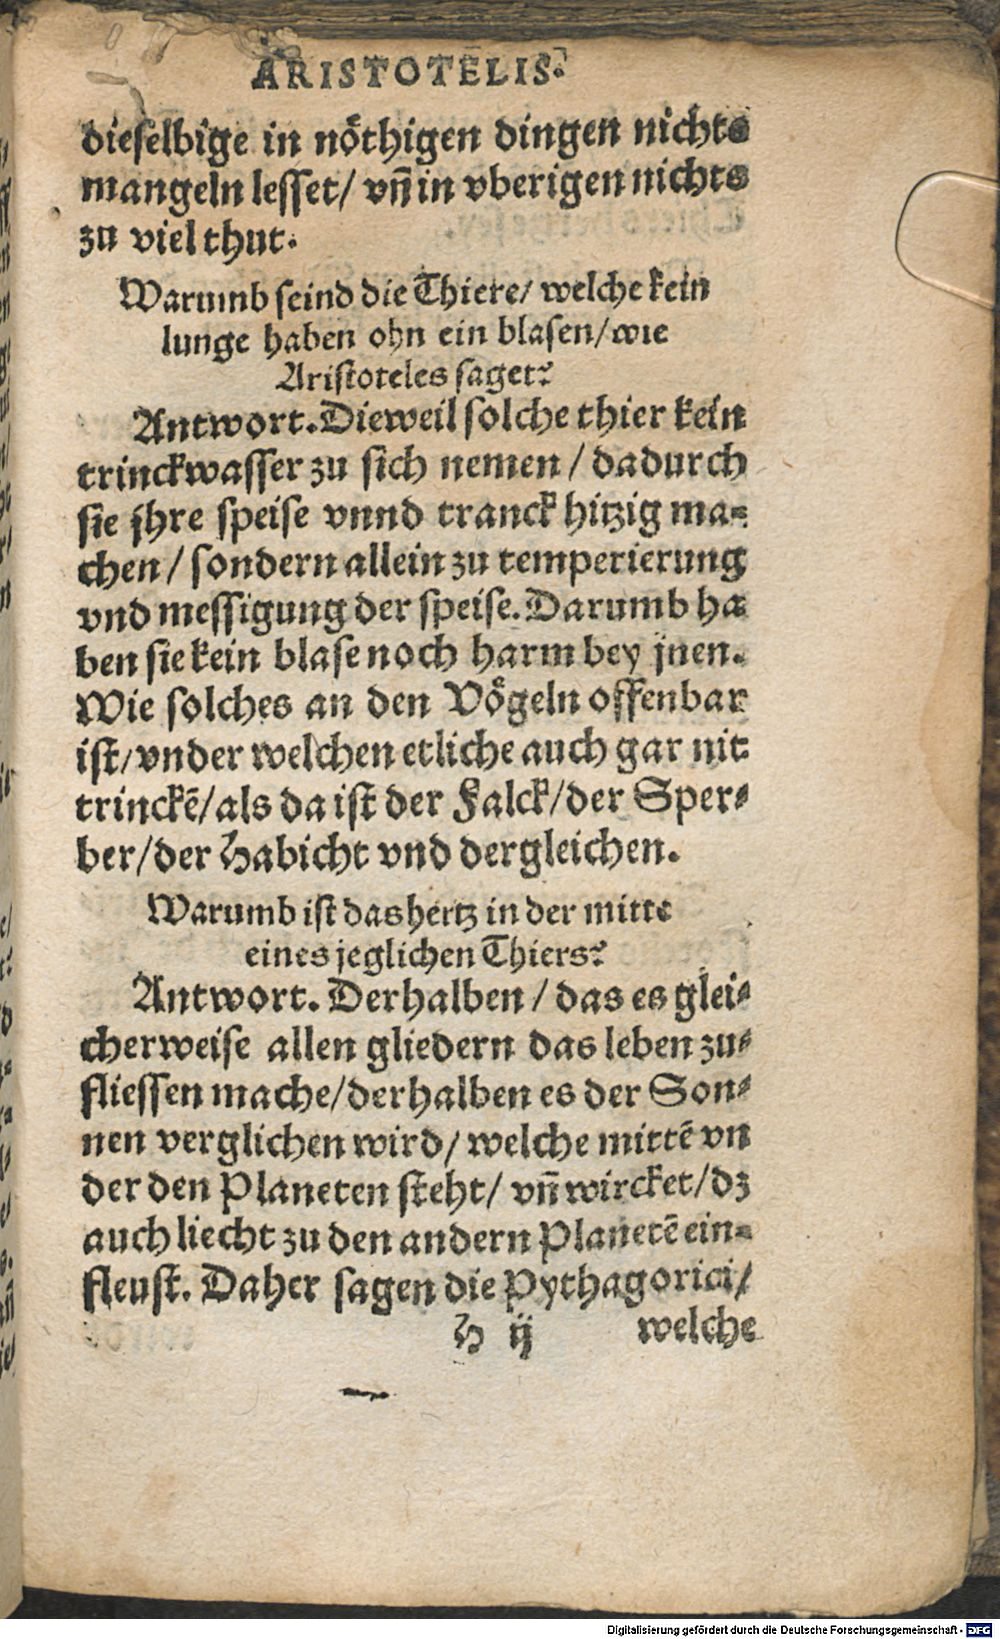 ARISTOTELIS.
dieselbige in nöthigen dingen nichts
mangeln lesset/ vñ in vberigen nichts
zu viel thut.
Warumb seind die Thiere/ welche kein
lunge haben ohn ein blasen/ wie
Aristoteles saget?
Antwort. Dieweil solche thier kein
trinckwasser zu sich nemen / dadurch
sie jhre speise vnnd tranck hitzig ma=
chen / sondern allein zu temperierung
vnd messigung der speise. Darumb ha=
ben sie kein blase noch harm bey jnen.
Wie solches an den Vögeln offenbar
ist/ vnder welchen etliche auch gar nit
trinckē/ als da ist der Falck/ der Sper=
ber/ der Habicht vnd dergleichen.
Warumb ist das hertz in der mitte
eines jeglichen Thiers?
Antwort. Derhalben / das es glei=
cherweise allen gliedern das leben zu=
fliessen mache/ derhalben es der Son=
nen verglichen wird/ welche mittē vn
der den Planeten steht/ vñ wircket/ dz
auch liecht zu den andern Planetē ein=
fleust. Daher sagen die Pythagorici/
H ij welche
Digitalisierung gefördert durch die Deutsche Forschungsgemeinschaft - DFG